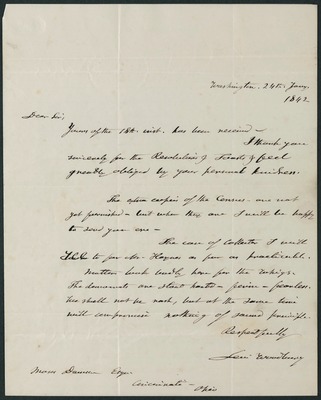 Washington 24th Jany.
1842
Dear Sir,
Yours of the 18th. inst. has been received -
I thank you
sincerely for the Resolutions & Toasts & feel
greatly obliged by your personal kindness.
The extra copies of the Census are not
yet furnished - but when they are I will be happy
to send you one -
The case of I will
to for Mr. Haynes as far as practicable.
Matters look badly here for the whigs.
The democrats are stout hearted - firm - fearless.
We shall not be rash, but at the same time
will compromise nothing of sound principle.
Respectfully
Levi Woodbury
Moses Dawson Esqr
Cincinnati -
Ohio